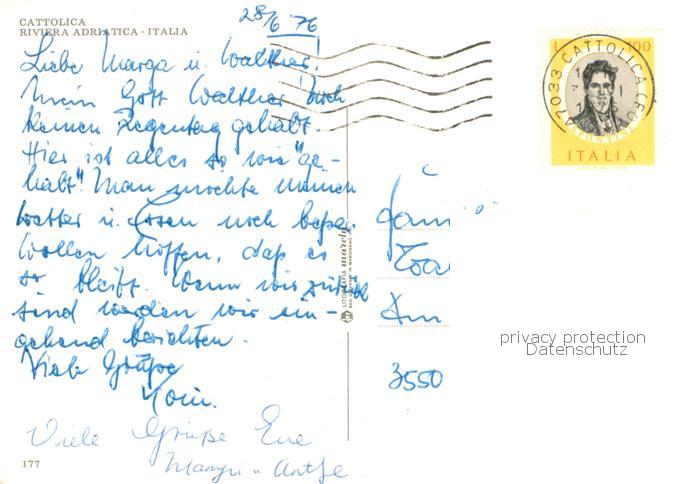 CATTOLICA
RIVIERA ADRIATICA - ITALIA
28/6 76
Liebe Marga u. Walther!
Mein Gott Walther! Noch
keinen Regentag gehabt.
Hier ist alles so wie "ge-
habt". Man möchte meinen
Wetter u. Essen noch besser
Wollen hoffen, daß es
so bleibt. Wenn wir zurück
sind werden wir ein-
gehend berichten.
Viele Grüße
Viele Grüße Eure
u. Antje
177
3550
47033 CATTOLICA (FO)
L 100
ITALIA
privacy protection
Datenschutz